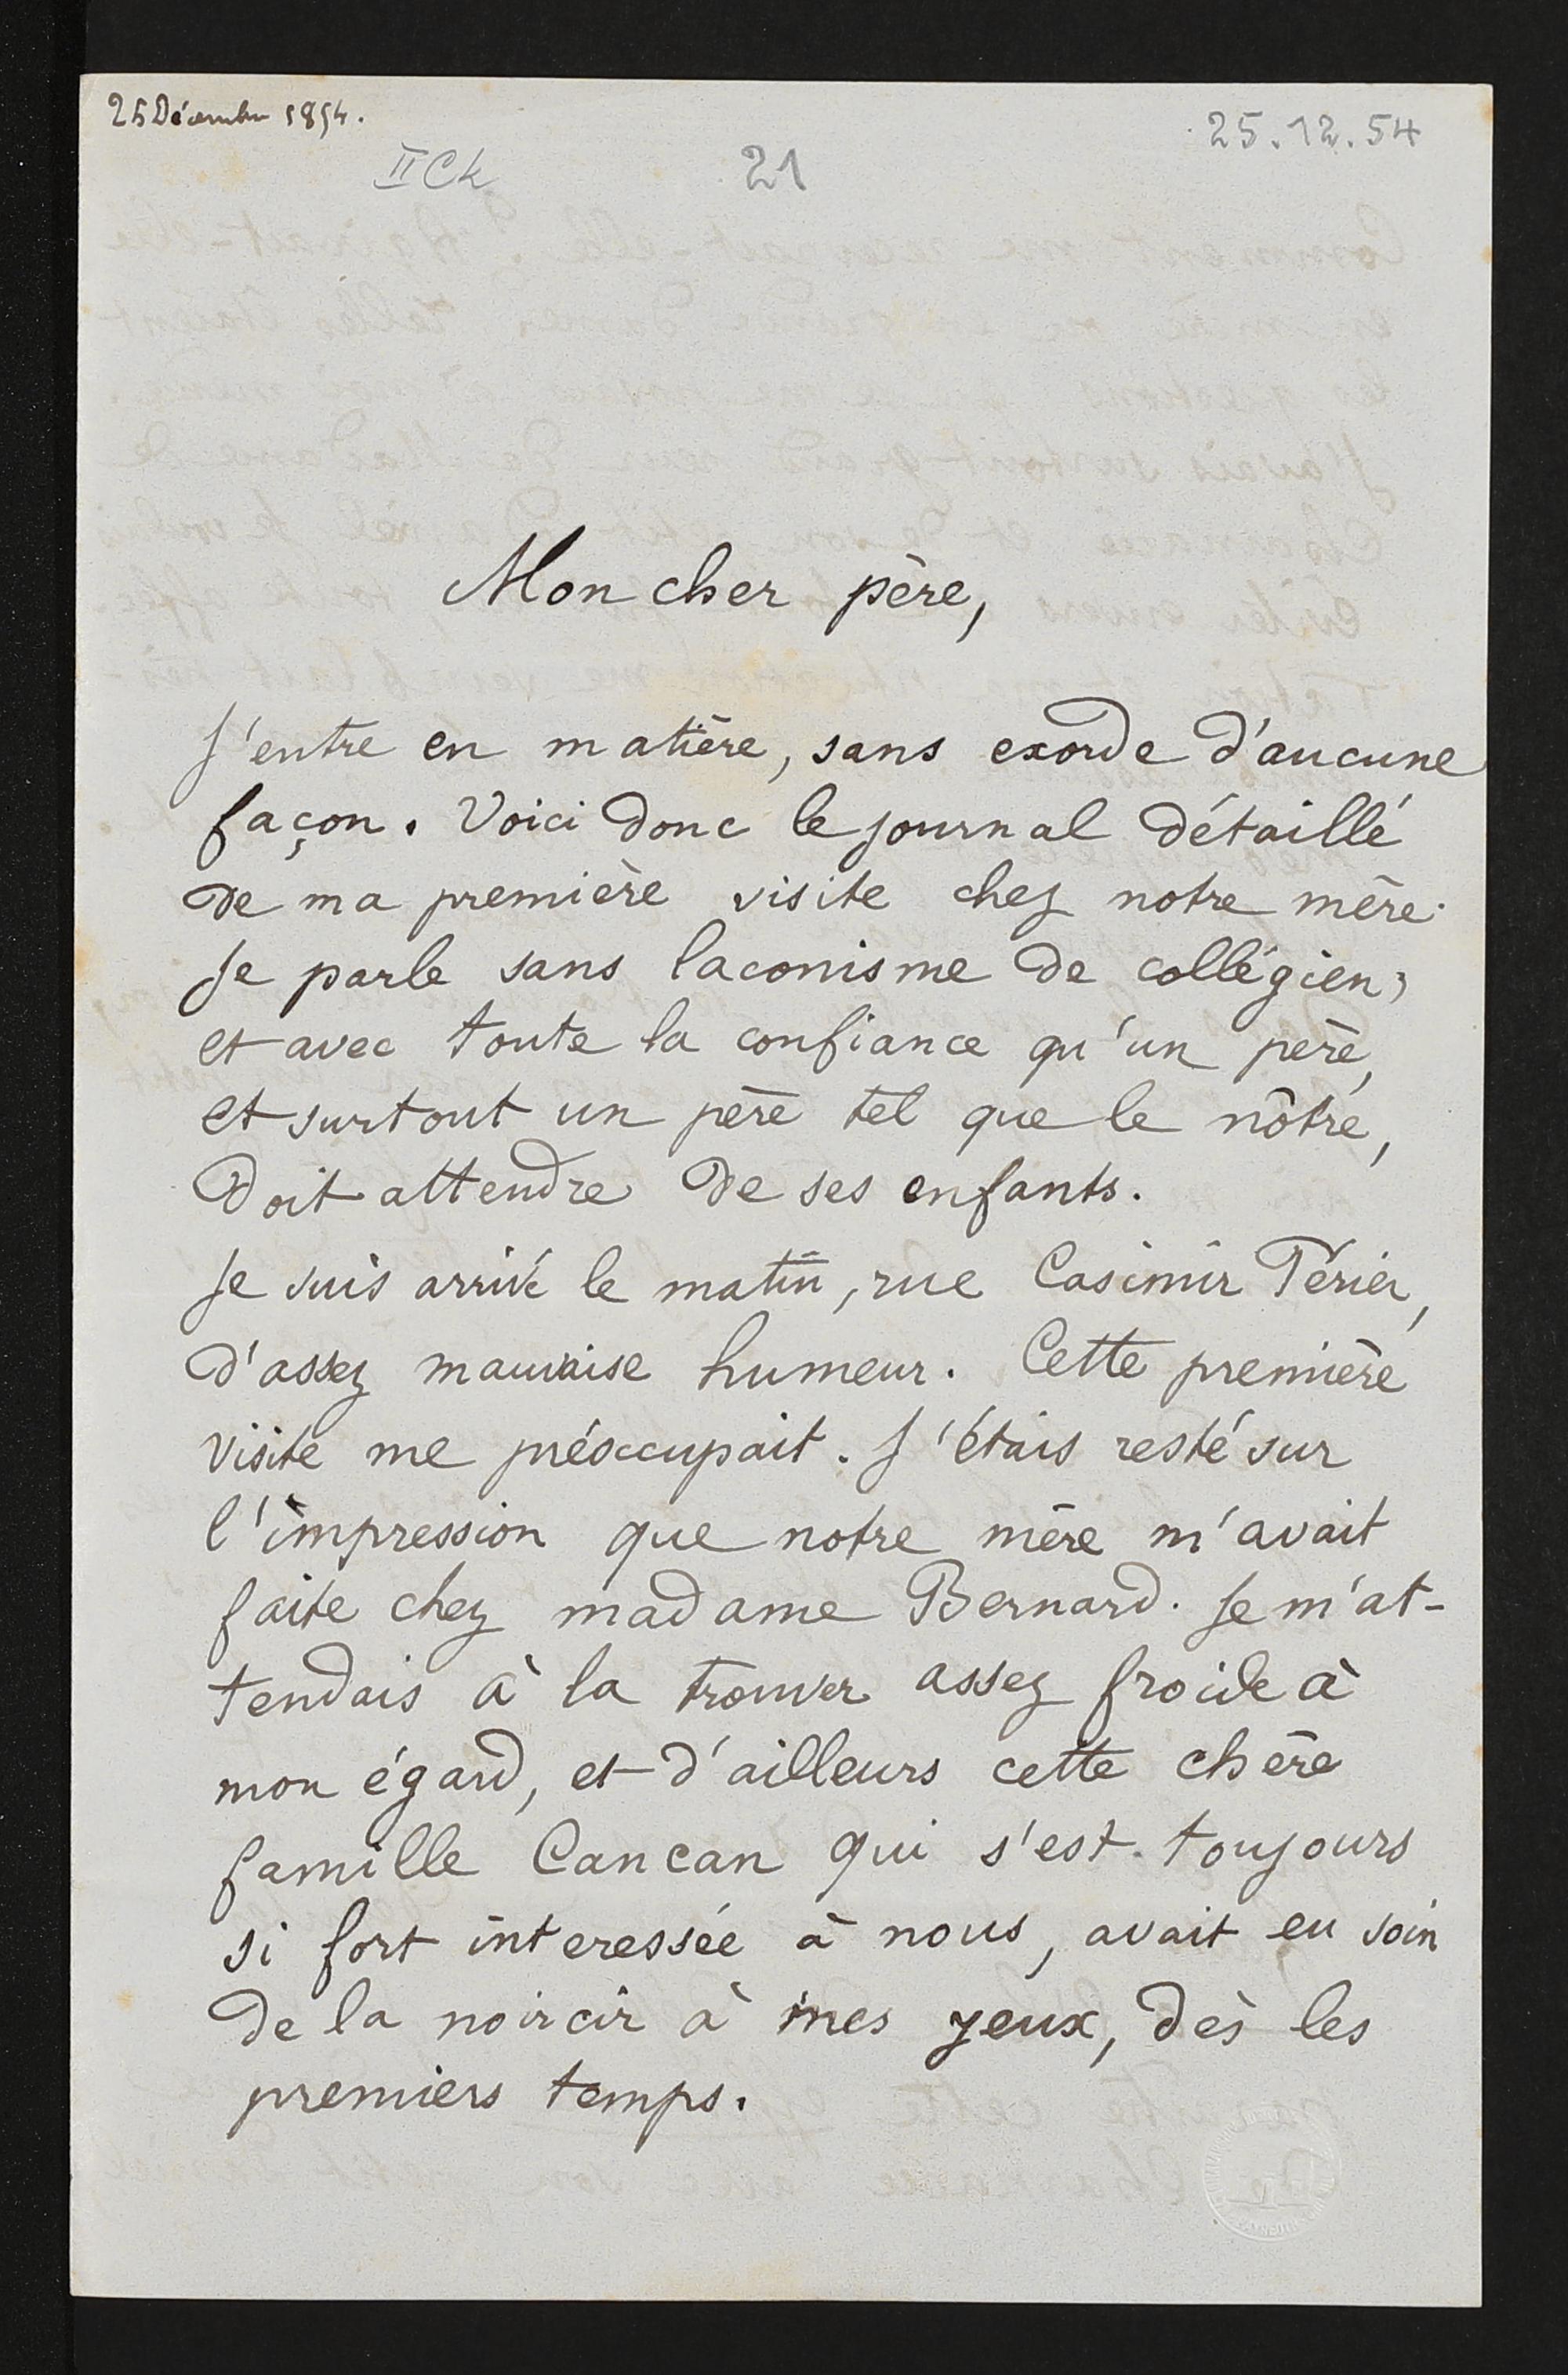 25 Décembre 1854.
25.12.54
II Ch
21
Mon cher père,
J'entre en matière, sans exorde d'aucune
façon. Voici donc le journal détaillé
de ma première visite chez notre mère.
Je parle sans laconisme de collégien,
et avec toute la confiance qu'un père,
et surtout un père tel que le nôtre,
doit attendre de ses enfants.
Je suis arrivé le matin, rue Casimir Périer,
d'assez mauvaise humeur. Cette première
visite me préoccupait. J'étais resté sur
l'impression que notre mère m'avait
faite chez madame Bernard. Je m'at-
tendais à la trouver assez froide à
mon égard, et d'ailleurs cette chère
famille Cancan qui s'est toujours
si fort interessée à nous, avait eu soin
de la noircir à mes yeux, dès les
premiers temps.